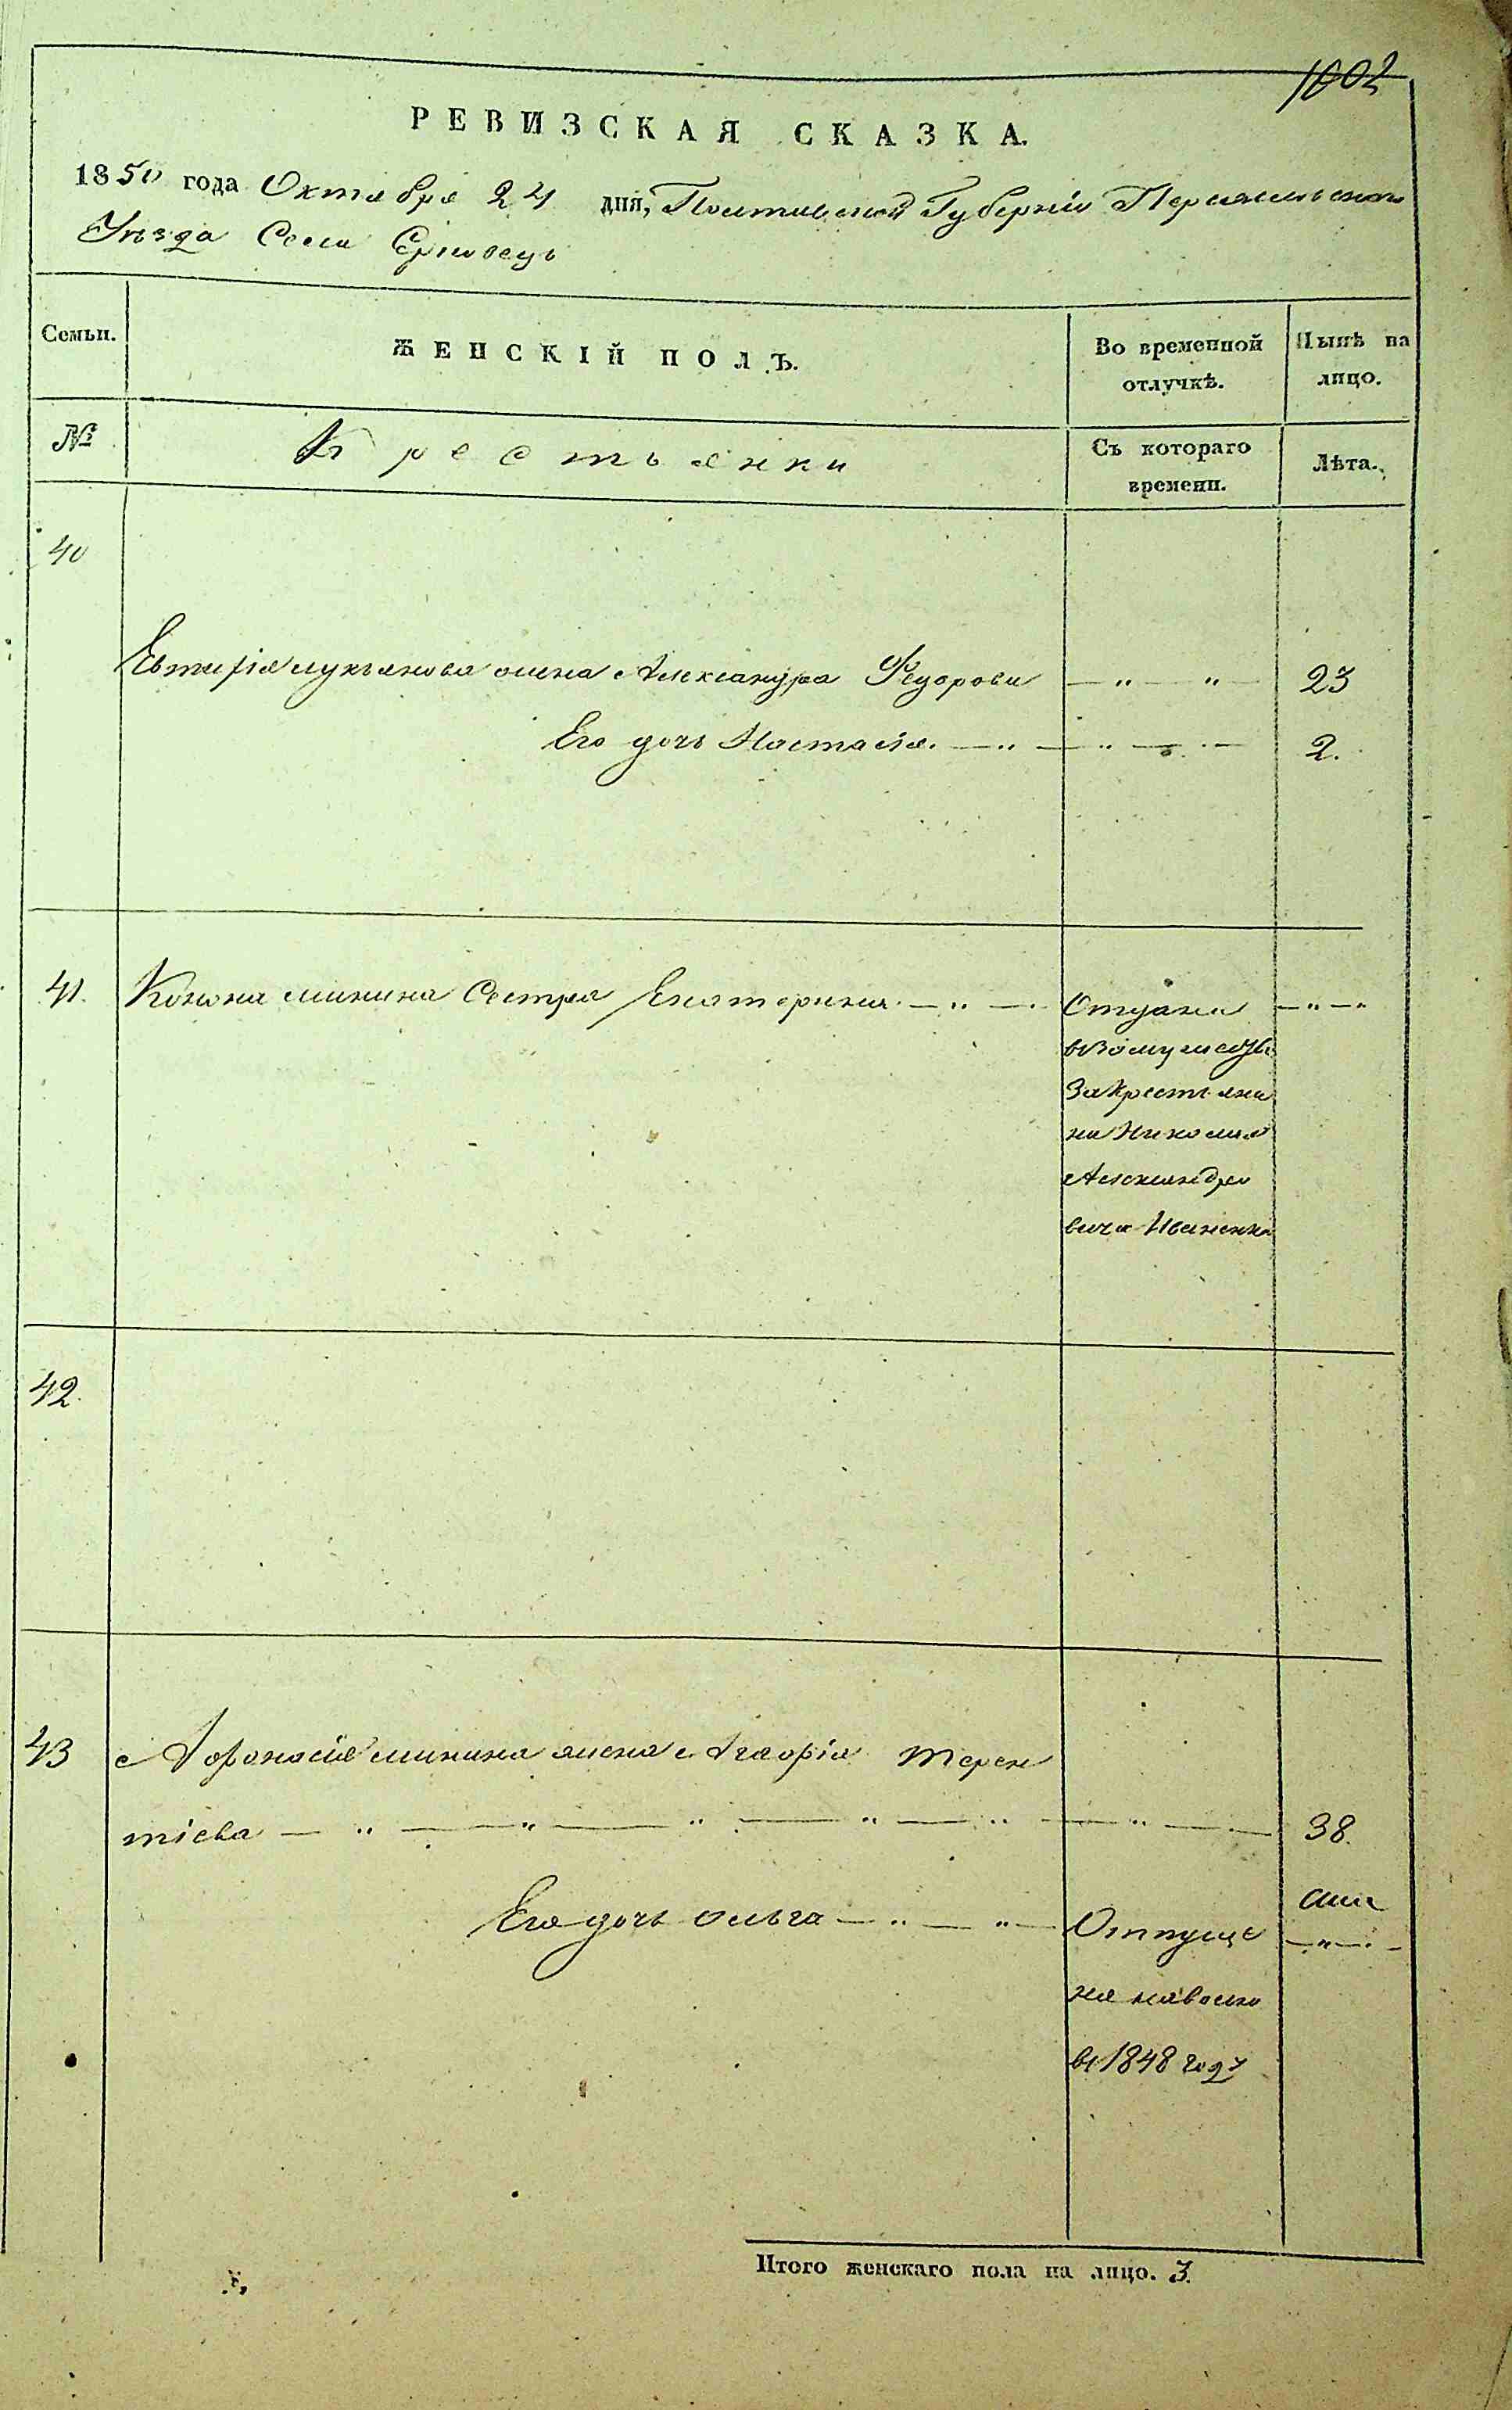 1002
РЕВИЗСКАЯ СКАЗКА.
1850 года Октября 24 дня, Полтавской Губерніи Переяславского
Уѣзда Села Ерковецъ
Семьи.
ЖЕНСКІЙ ПОЛЪ.
Во временной отлучкѣ.
Нынѣ на лицо.
№
Крестьянки
Съ котораго времени.
Лѣта.
40
Евтифія лукъянова жена Александра Федорова — " — " — 23
Его дочь Настасія. — " — " — " — 2.
41. Конона минина Сестра Екатерина — " — Отдана — " —
взамужество
За Крестьяни
на Николая
Александро
вича Иваненка
42.
43 Афонасія минина жена Агафія терен
тіева — " — " — " — " — " — " — 38.
Его дочь ольга — " — " — Отпуще — " —
на наволю
въ 1848 году
Итого женскаго пола на лицо. 3.